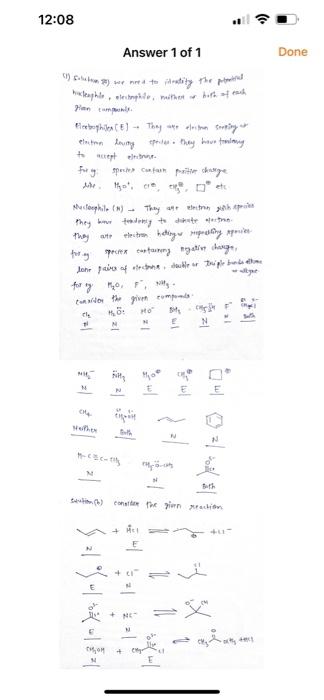 12:08
Answer 1 of 1
Done
(1) Solution (a) we need to identify the potential
nucleophile, electrophile, neither or both of each
given compounds.
Electrophiles (E) → They are electron seeking or
electron loving species. they have tendency
to accept electrons.
for eg: species contain positive charge
like, H₃O⁺, etc
Nucleophile (N) → They are electron rich species
they have tendency to donate electrons.
They are electron species
for eg species containing negative charge,
lone pairs of electrons, double or triple bonds alkene
or alkyne
for eg H₂O, F⁻, NH₃.
Consider the given compounds.
H₂O: HO⁻ BH₃ F⁻
N N N E N N Both
NH₂⁻ NH₃ H₃O⊕ CH₃⊕ ⊕
N N E E E
CH₄ CH₃OH
Neither Both N N
H-C≡C-CH₃ CH₃-O-CH₃
N N Both
Solution (b) consider the given reaction
+ HCl ⇌ + Cl⁻
N E
+ Cl⁻ ⇌ Cl
E N
+ NC⁻ ⇌ O⁻ CN
E N
CH₃OH + CH₃ Cl ⇌ CH₃ OCH₃ + HCl
N E